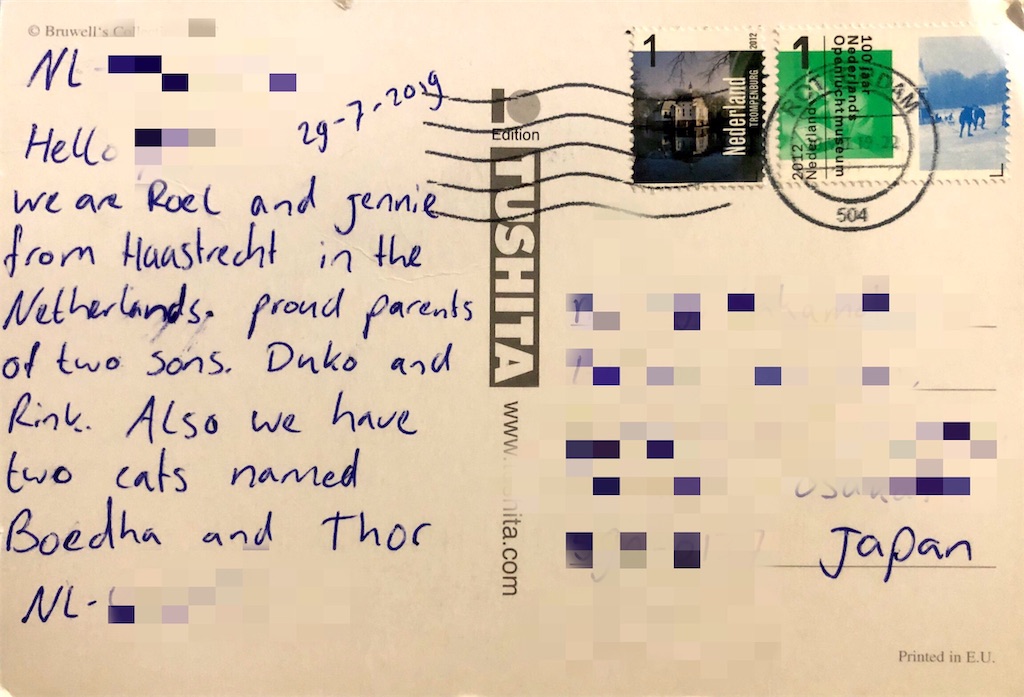 © Bruwell's
NL-
29-7-2019
Hello
we are Roel and Jennie
from Haastrecht in the
Netherlands. proud parents
of two sons. Duko and
Rink. Also we have
two cats named
Boedha and Thor
NL-
Edition
TUSHITA
www.
hita.com
1
Nederland
TROMPENBURG
2012
1
100 jaar
Nederlands
Openluchtmuseum
Nederland
2012
504
Japan
Printed in E.U.